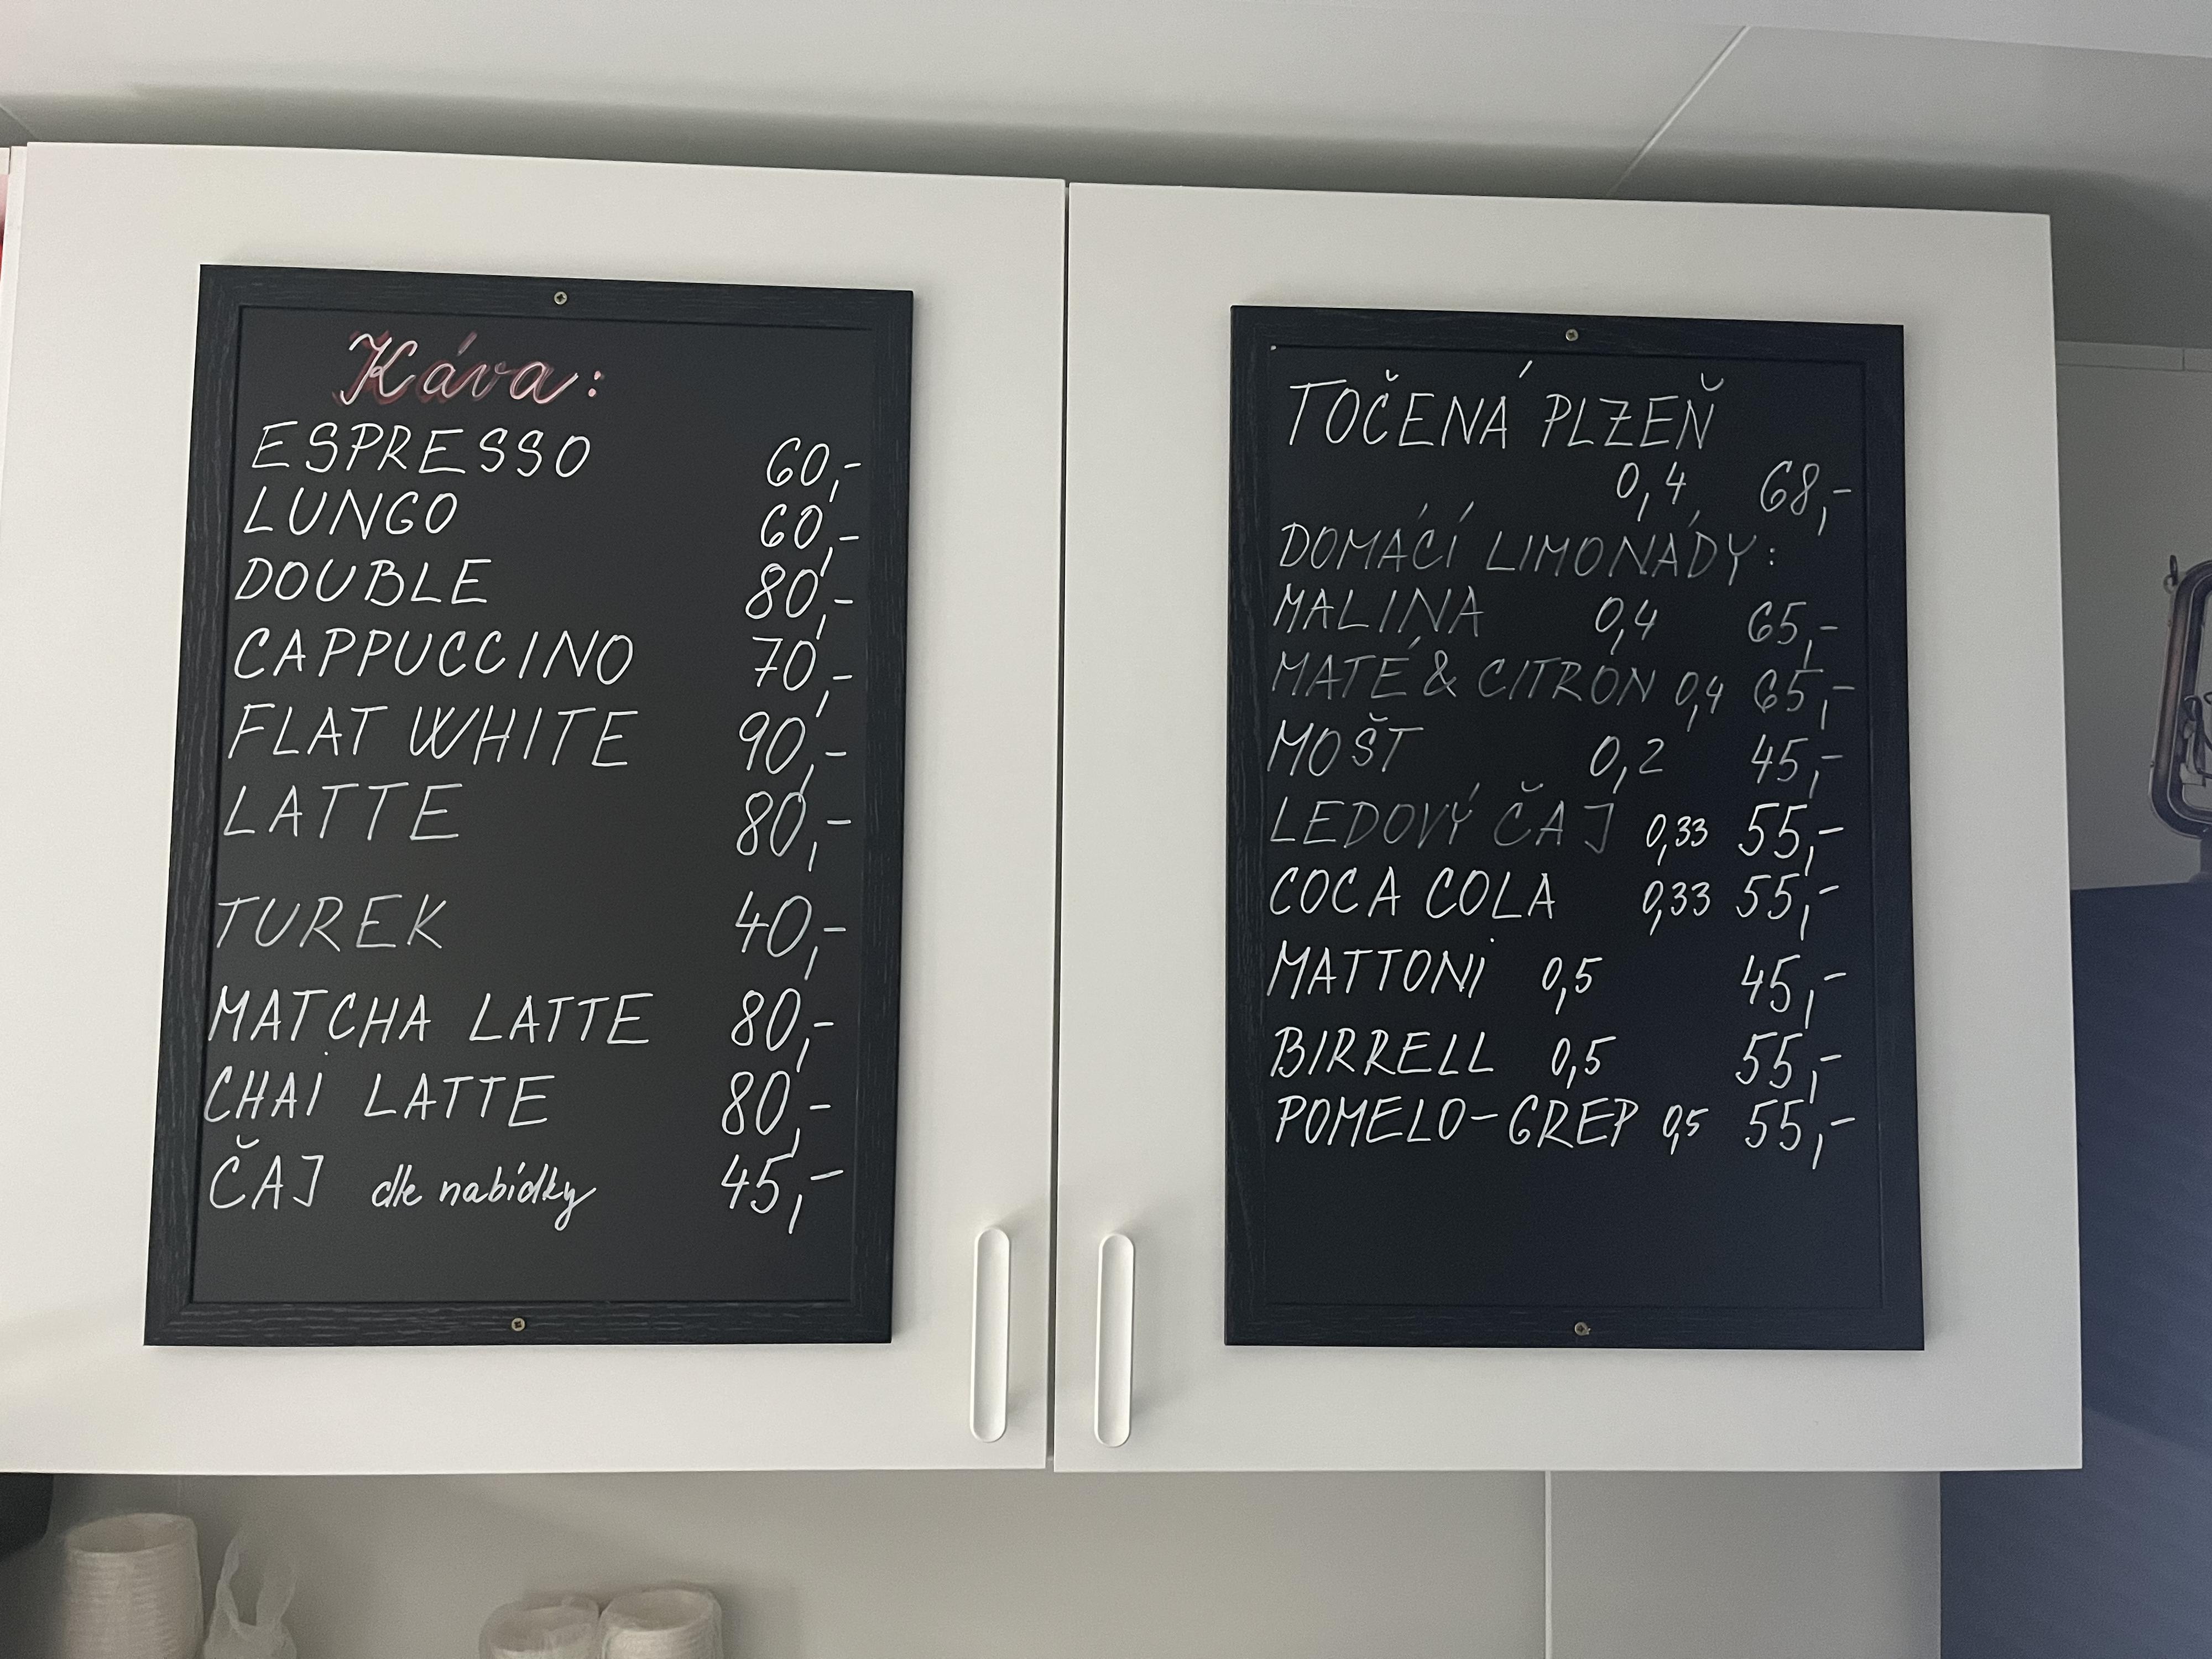 Káva:
ESPRESSO 60,-
LUNGO 60,-
DOUBLE 80,-
CAPPUCCINO 70,-
FLAT WHITE 90,-
LATTE 80,-
TUREK 40,-
MATCHA LATTE 80,-
CHAI LATTE 80,-
ČAJ dle nabídky 45,-
TOČENÁ PLZEŇ
0,4 68,-
DOMÁCÍ LIMONÁDY:
MALINA 0,4 65,-
MATÉ & CITRON 0,4 65,-
MOŠT 0,2 45,-
LEDOVÝ ČAJ 0,33 55,-
COCA COLA 0,33 55,-
MATTONI 0,5 45,-
BIRRELL 0,5 55,-
POMELO-GREP 0,5 55,-